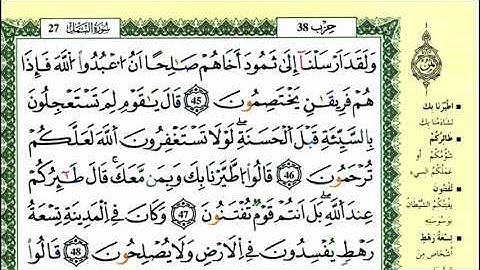 حزب 38
سُورَةُ النَّمْلِ 27
وَلَقَدَ اَرْسَلْنَآ إِلَىٰ ثَمُودَ أَخَاهُمْ صَٰلِحاً اَنُ اعْبُدُواْ اللَّهَ فَإِذَا
هُمْ فَرِيقَٰنِ يَخْتَصِمُونَ 45 قَالَ يَٰقَوْمِ لِمَ تَسْتَعْجِلُونَ
بِالسَّيِّئَةِ قَبْلَ الْحَسَنَةِ لَوْلَا تَسْتَغْفِرُونَ اللَّهَ لَعَلَّكُمْ
تُرْحَمُونَ 46 قَالُواْ اُطَّيَّرْنَا بِكَ وَبِمَن مَّعَكَ قَالَ طَٰٓئِرُكُمْ
عِندَ اللَّهِ بَلَ اَنتُمْ قَوْمٌ تُفْتَنُونَ 47 وَكَانَ فِي الْمَدِينَةِ تِسْعَةُ
رَهْطٍ يُفْسِدُونَ فِي الْأَرْضِ وَلَا يُصْلِحُونَ 48 قَالُواْ
اطَّيَّرْنَا بِكَ
تَشَاءَمْنَا بِكَ
طَائِرُكُمْ
شُؤْمُكُمْ أَو
عَمَلُكُمُ السيء
تُفْتَنُونَ
يَفْتِنُكُمُ الشَّيْطَانُ
بِوَسْوَسَتِهِ
تِسْعَةُ رَهْطٍ
أَشْخَاصٍ مِنَ